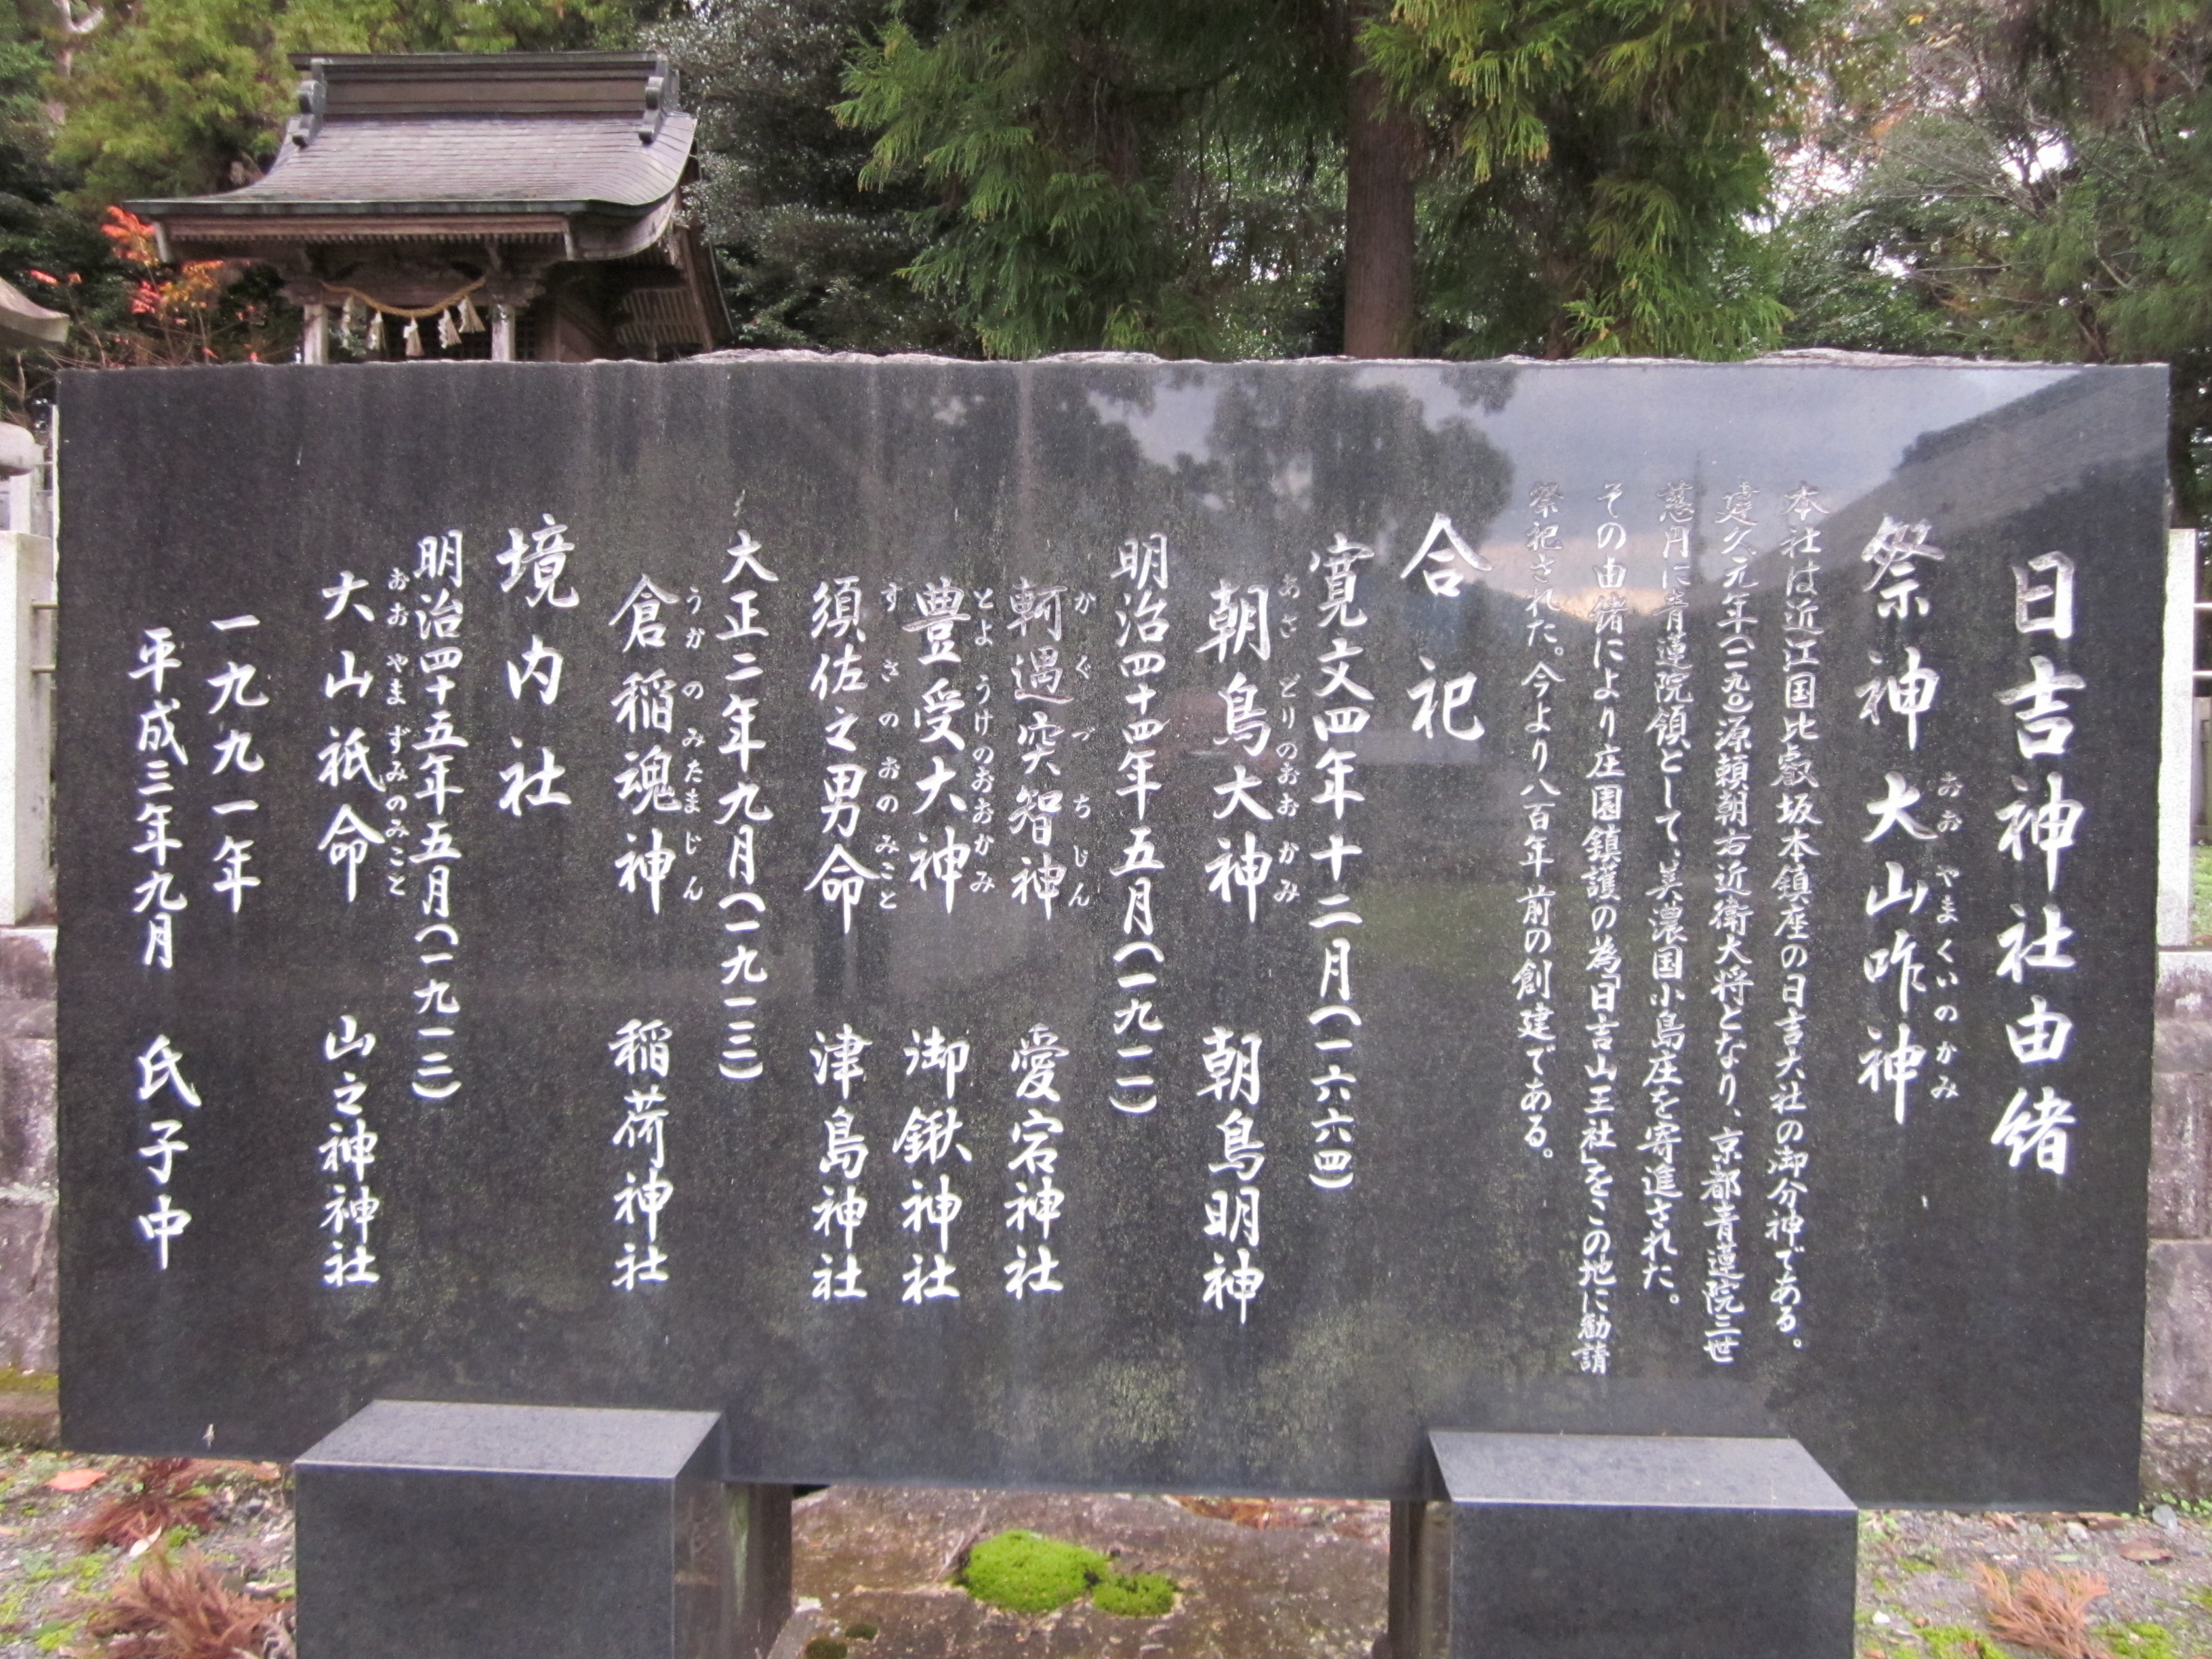 日吉神社由緒
祭神 大山咋神
おおやまくいのかみ
本社は近江国比叡坂本鎮座の日吉大社の御分神である。
建久元年(一一九〇)源頼朝右近衛大将となり、京都青蓮院三世
慈円に青蓮院領として、美濃国小島庄を寄進された。
その由緒により庄園鎮護の為「日吉山王社」をこの地に勧請
祭祀された。今より八百年前の創建である。
合祀
寛文四年十二月(一六六四)
朝鳥大神 朝鳥明神
あさどりのおおかみ
明治四十四年五月(一九一一)
軻遇突智神 愛宕神社
かぐづちじん
豊受大神 御鍬神社
とようけのおおかみ
須佐之男命 津島神社
すさのおのみこと
大正二年九月(一九一三)
倉稲魂神 稲荷神社
うかのみたまじん
境内社
明治四十五年五月(一九一二)
大山祇命 山之神神社
おおやまずみのみこと
一九九一年
平成三年九月 氏子中